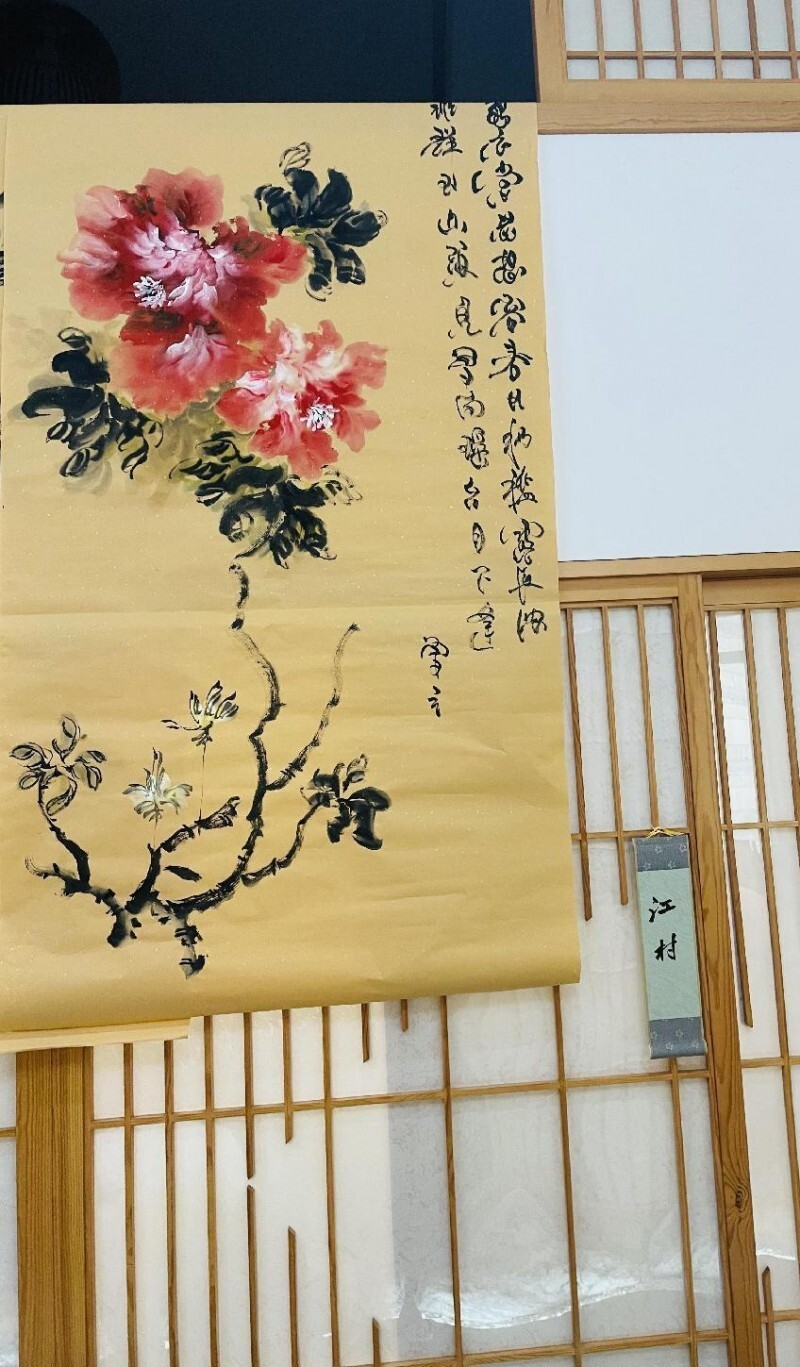 想衣裳花想容春風拂檻露華濃
非群玉山頭見會向瑤台月下逢
江村